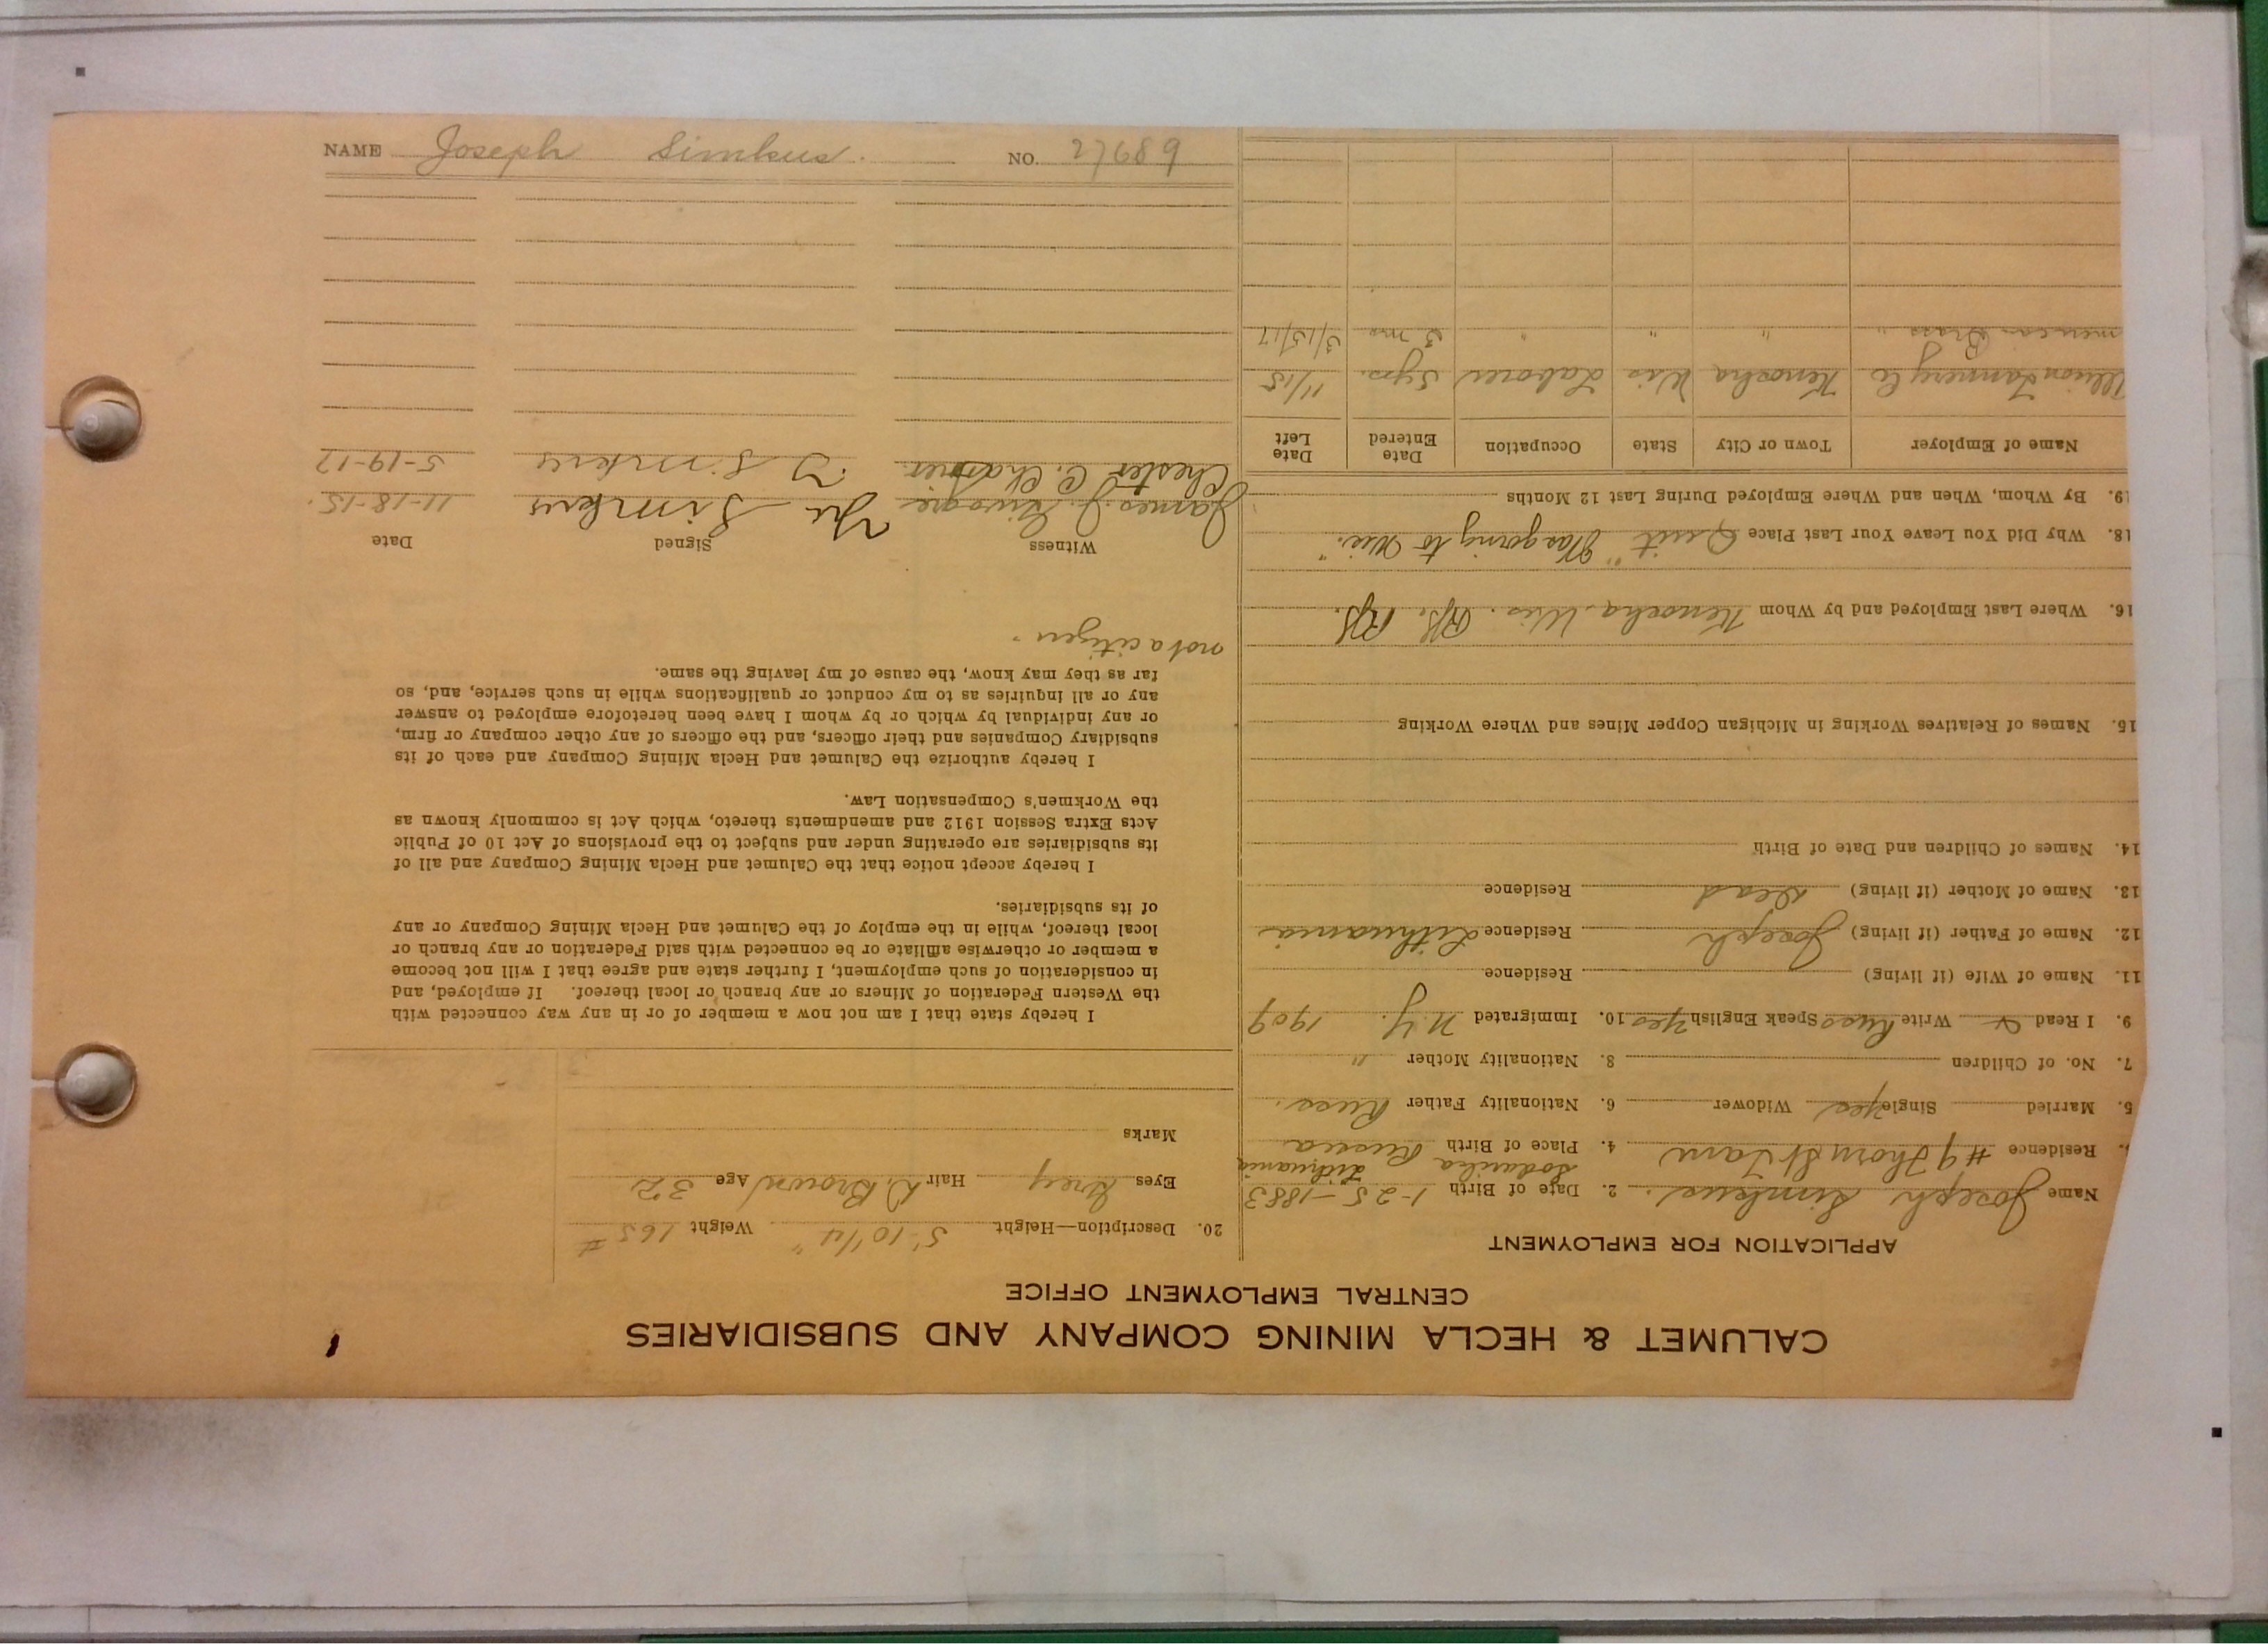 CALUMET & HECLA MINING COMPANY AND SUBSIDIARIES
CENTRAL EMPLOYMENT OFFICE
APPLICATION FOR EMPLOYMENT
Name Joseph Simkus. 2. Date of Birth 1-25-1883
Lithuania
Residence #9 Thorn St 4. Place of Birth Russia
5. Married Single yes Widower 6. Nationality Father Russ.
7. No. of Children 8. Nationality Mother "
9. I Read & Write Russ Speak English yes 10. Immigrated N.Y. 1909
11. Name of Wife (if living) Residence
12. Name of Father (if living) Joseph Residence Lithuania
13. Name of Mother (if living) Dead Residence
14. Names of Children and Date of Birth
15. Names of Relatives Working in Michigan Copper Mines and Where Working
16. Where Last Employed and by Whom Kenosha, Wis.
18. Why Did You Leave Your Last Place Quit "Was going to Wis."
19. By Whom, When and Where Employed During Last 12 Months
Name of Employer Town or City State Occupation Date Entered Date Left
Tannery Co Kenosha Wis Laborer 5 yrs. 11/15
merican Brass " " " " 3 mo 3/15/17
20. Description—Height 5'-10 1/4" Weight 165 #
Eyes Grey Hair D. Brown Age 32
Marks
I hereby state that I am not now a member of or in any way connected with
the Western Federation of Miners or any branch or local thereof. If employed, and
in consideration of such employment, I further state and agree that I will not become
a member or otherwise affiliate or be connected with said Federation or any branch or
local thereof, while in the employ of the Calumet and Hecla Mining Company or any
of its subsidiaries.
I hereby accept notice that the Calumet and Hecla Mining Company and all of
its subsidiaries are operating under and subject to the provisions of Act 10 of Public
Acts Extra Session 1912 and amendments thereto, which Act is commonly known as
the Workmen's Compensation Law.
I hereby authorize the Calumet and Hecla Mining Company and each of its
subsidiary Companies and their officers, and the officers of any other company or firm,
or any individual by which or by whom I have been heretofore employed to answer
any or all inquiries as to my conduct or qualifications while in such service, and, so
far as they may know, the cause of my leaving the same.
not a citizen.
Witness Signed Date
James J. Simkus 11-18-15.
Chester C. J Simkus 5-19-17
NAME Joseph Simkus. NO. 27689